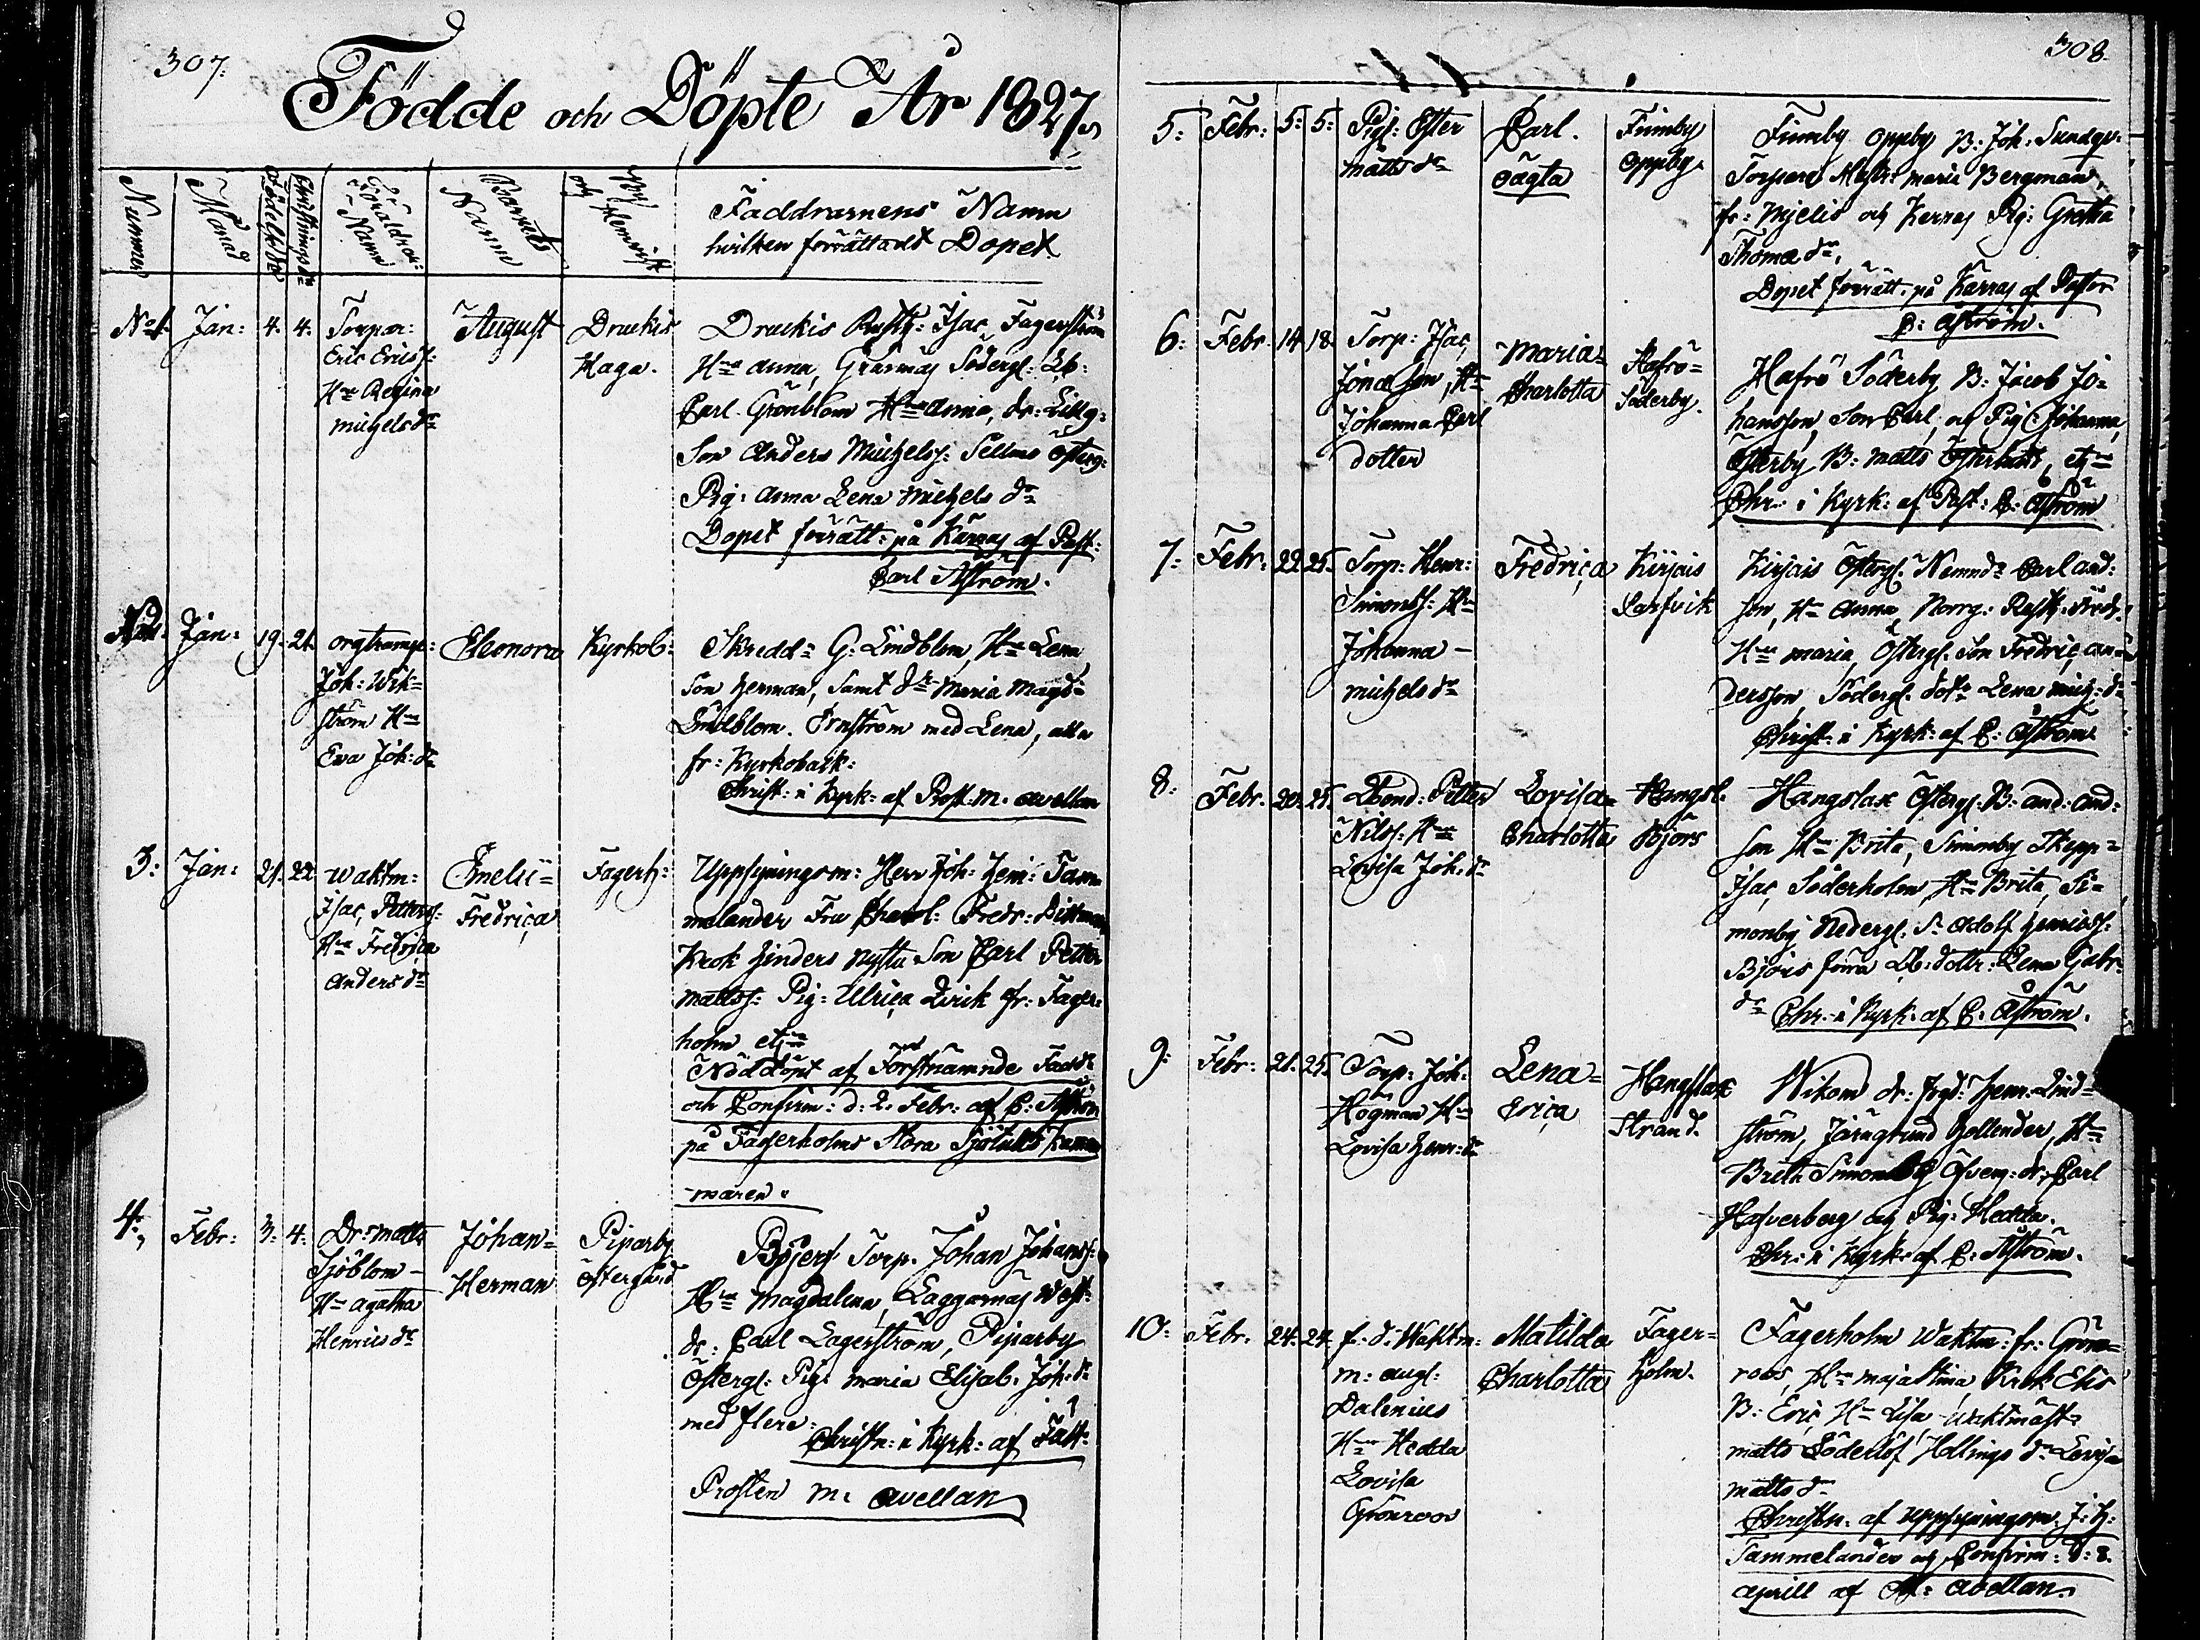 307.
Födde och Döpte År 1827.
Nummer
Månad
Födelse dn
Christnings dn
Föräldrar: Namn
Barnets Namn
By och Hemvist
Faddrarnens Namn
hvilken förrättadt Dopet
No 1. Jan: 4. 4.
Torpar:
Eric Erics:
Hu Regina
michels dr
August
Druckis
Haga.
Druckis Rusth: Isac Fagerström
Hu anna, Gräsnäs Södergl: Lb:
Carl Grönblom Hu anna, dr:
Son Anders Michels: Österg:
Pig: anna Lena Michels dr
Dopet förrätt: på Kärras af Past:
Carl Åström.
Jan: 19. 21.
Joh: Wik=
ström Hu
Eva Joh: dr
Eleonora
Kyrkob:
Skredd: G: Lindblom, Hu Lena
Son Herman, samt dr Maria Magd:
Lindblom. Örnström med Lena, alla
fr: Kyrkoback:
Christ: i Kyrk: af Prost: M. Avellan
3: Jan: 21. 22.
Waktm:
Isac Petters:
Hu Fredrica
Anders dr
Emelii=
Fredrica
Fagerh:
Uppsyningsm: Herr Joh: Hen: Tam=
melander Fru Charl: Fredr: Dittman
Krok Hinders Nysta Son Carl Petter
Matts: Pig: Ulrica Qvick fr: Fager=
holm etc
Nöddöpt af Förstnämnde Fadd:
och Confirm: d: 2. Febr: af C: Åström
på Fagerholms Stora Sjötulls Kam=
maren.
4. Febr: 3. 4.
Dr: Matts
Sjöblom
Hu Agatha
Henrics dr
Johan=
Herman
Piparby
Östergård
Böjers Torp. Johan Johans:
Hu Magdalena, Laggarnäs West:
dr: Carl Lagerström, Piparby
Östergl: Pig: Maria Elisab: Joh: dr
med flere:
Christn: i Kyrk: af Fatt:
Prosten M: Avellan
308.
5: Febr: 5: 5:
Pig: Ester
Matts dr
Carl.
Oägta
Finnby
Oppby.
Finnby Oppby B: Joh: Sundqv:
Torpare Hustr: Maria Bergman
fr: Mjelis och Kerras Pig: Gretha
Thomæ dr,
Dopet förrätt: på Kärras af Pastor
C: Åström.
6: Febr. 14. 18.
Torp: Isac
Jonæson, Hu
Johanna Carl
dotter
Maria=
Charlotta
Hafrö=
Söderby.
Hafrö Söderby B: Jacob Jo=
hansson, Son Carl, och Pig Johanna,
Österby B: Matts Österlund, etc
Chr: i Kyrk: af Past: C: Åström
7: Febr: 22. 25.
Torp: Henr:
Simonss: Hu
Johanna
Michels dr
Fredrica
Kirjais
Larsvik
Kirjais Östergl: Nämnd: Carl And:
son, Hu Anna, Norrg: Rusth:
Hu Maria, Östergl: Son Fredric An=
dersson, Södergl: dotr Lena Mich: dr
Christ: i Kyrk: af C: Åström
8. Febr. 20. 25.
Bond: Petter
Nilss: Hu
Lovisa Joh: dr
Lovisa=
Charlotta
Hangsl.
Björs
Hangslax Östergl: B: And: And:
son Hu Brita, Simonby Skepp=
Isac Söderholm Hu Brita, Si=
monby Nedergl: S: Adolf Henricss:
Björs förra Lb: dottr: Lena Gabr:
dr Chr: i Kyrk: af C: Åström.
9: Febr: 21. 25.
Torp: Joh:
Högman Hu
Lovisa Henr: dr
Lena=
Erica
Hangslax
Strand.
Wikom dr: Hen: Lind=
ström, Järngrund Gollender, Hu
Brita Simonby Öfverg: dr: Carl
Hafverberg och Pig: Hedda.
Chr: i Kyrk: af C: Åström.
10: Febr. 24. 24.
f. d: Waktm:
M: Augl:
Dalenius
Hu Hedda
Lovisa
Grönroos
Matilda
Charlotta
Fager=
holm.
Fagerholm Waktm: fr: Grön=
roos, Hu Maja Stina, Krok Ers
B: Eric Hu Lisa Waktmäst:
Matts Söderlöf Hollings dr Lovisa
Matts dr
Christn: af Uppsyningsm: J: H:
Tammelander och Confirm: d: 8.
Aprill af M: Avellan.